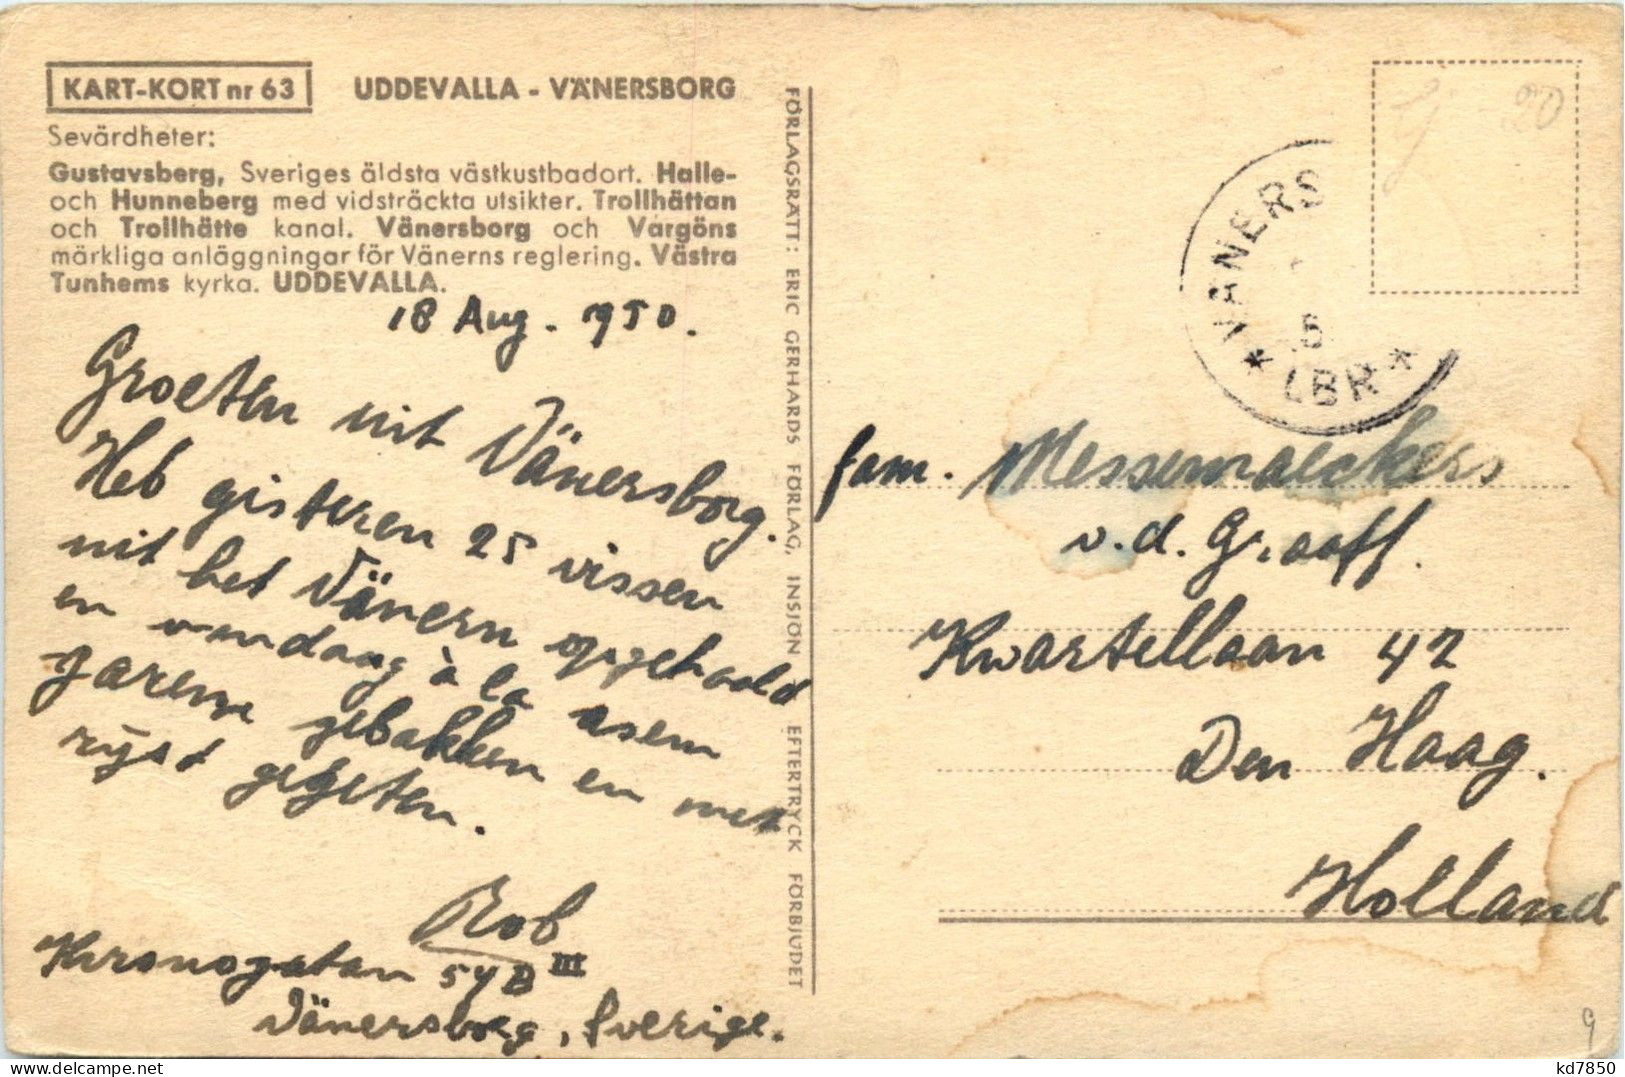 KART-KORT nr 63 UDDEVALLA - VÄNERSBORG
Sevärdheter:
Gustavsberg, Sveriges äldsta västkustbadort. Halle-
och Hunneberg med vidsträckta utsikter. Trollhättan
och Trollhätte kanal. Vänersborg och Vargöns
märkliga anläggningar för Vänerns reglering. Västra
Tunhems kyrka. UDDEVALLA.
18 Aug. 1950.
Groeten uit Vänersborg.
Heb gisteren 25 vissen
uit het Vänern opgehaald
en vandaag à la
gebakken en met
rijst gegeten.
Rob
Kronogatan 54 B III
Vänersborg, Sverige.
FÖRLAGSRÄTT: ERIC GERHARDS FÖRLAG, INSJÖN EFTERTRYCK FÖRBJUDET
VÄNERS
5
LBR
20
fam. Messemaeckers
v.d. Graaff.
Kwartellaan 42
Den Haag.
Holland
9
kd7850